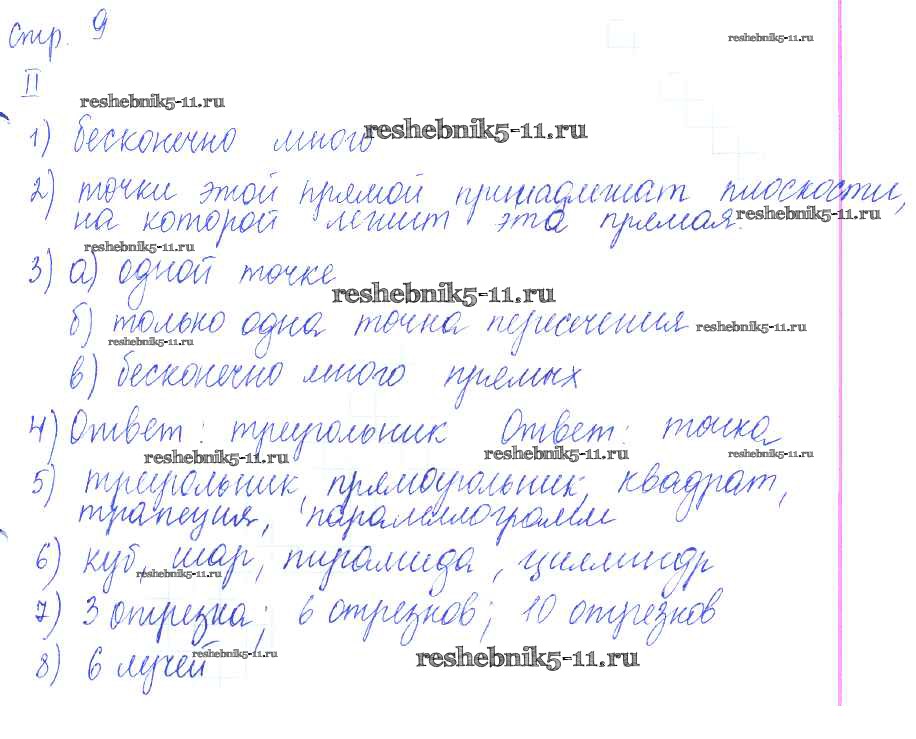 Стр. 9
reshebnik5-11.ru
II
reshebnik5-11.ru
1) бесконечно много
reshebnik5-11.ru
2) точки этой прямой принадлежат плоскости,
на которой лежит эта прямая.
reshebnik5-11.ru
reshebnik5-11.ru
3) а) одной точке
reshebnik5-11.ru
б) только одна точка пересечения
reshebnik5-11.ru
reshebnik5-11.ru
в) бесконечно много прямых
4) Ответ: треугольник Ответ: точка
reshebnik5-11.ru
reshebnik5-11.ru
reshebnik5-11.ru
5) треугольник, прямоугольник, квадрат,
трапеция, параллелограмм
6) куб, шар, пирамида, цилиндр
reshebnik5-11.ru
7) 3 отрезка; 6 отрезков; 10 отрезков
8) 6 лучей
reshebnik5-11.ru
reshebnik5-11.ru